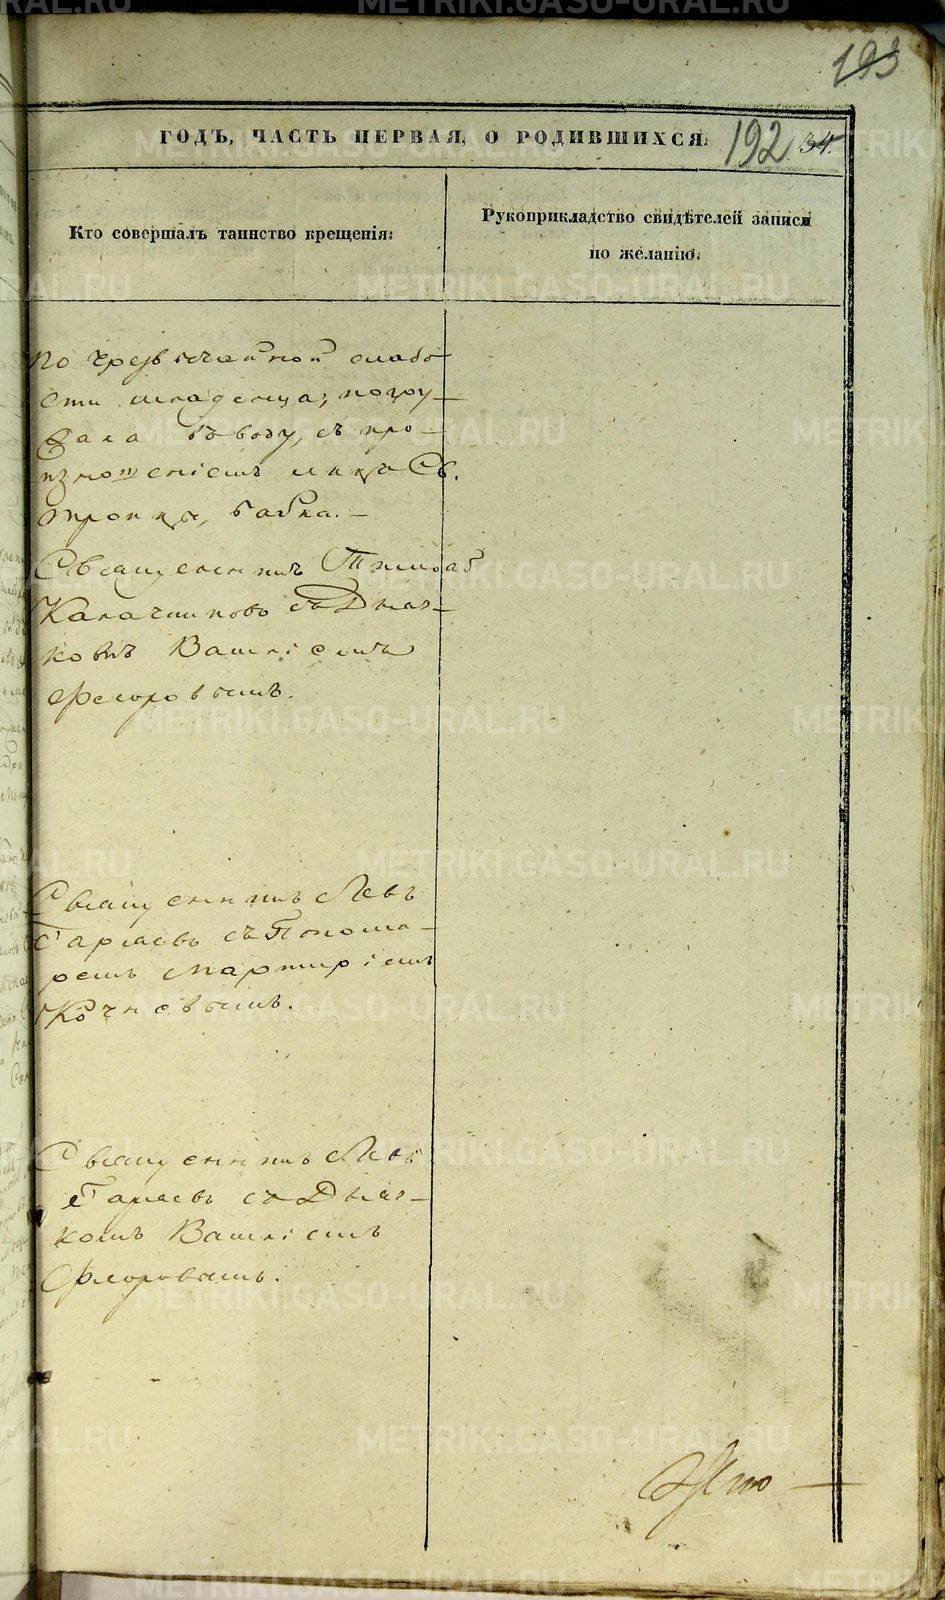 193
ГОДЪ, ЧАСТЬ ПЕРВАЯ, О РОДИВШИХСЯ.
192 34.
Кто совершалъ таинство крещенія:
Рукоприкладство свидѣтелей записи
по желанію.
По чрезвычайной слабо
сти младенца, погру
жала въ воду, съ про
изношеніемъ имяъ Св.
Троицы, бабка.
Священникъ Тимоѳ
Калачниковъ съ Дьяч
комъ Василіемъ
Флоровымъ.
Священникъ Левъ
съ Понома
ремъ Мартиріемъ
Священникъ Левъ
съ Дьяч
комъ Василіемъ
Флоровымъ.
METRIKI.GASO-URAL.RU